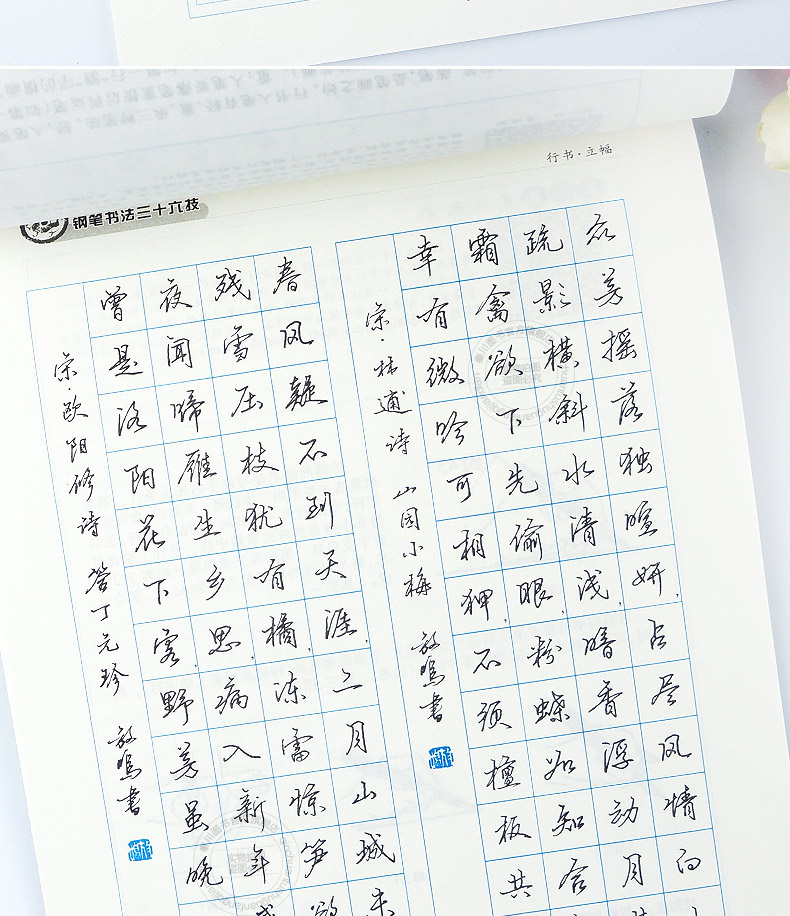 行书·立幅
钢笔书法三十六技
众芳摇落独暄妍,占尽风情向
疏影横斜水清浅,暗香浮动月
霜禽欲下先偷眼,粉蝶如知合
幸有微吟可相狎,不须檀板共
宋·林逋诗 山园小梅 放鸣书
春风疑不到天涯,二月山城未
残雪压枝犹有橘,冻雷惊笋欲
夜闻啼雁生乡思,病入新年感
曾是洛阳花下客,野芳虽晚
宋·欧阳修诗 答丁元珍 放鸣书